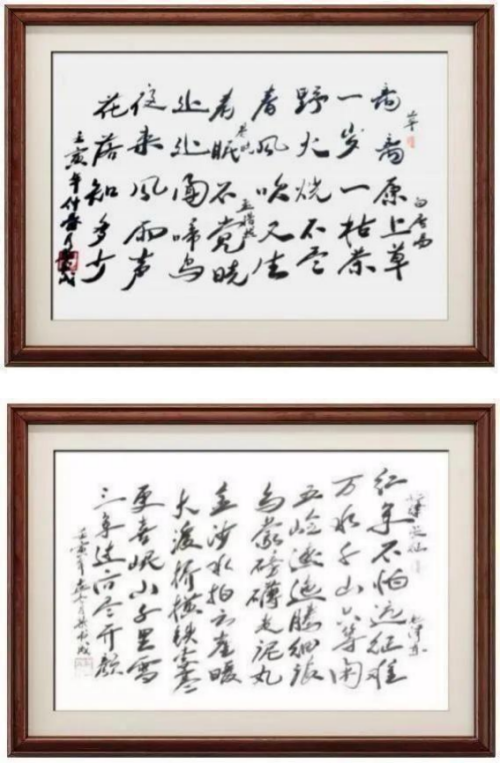 草
白居易
离离原上草
一岁一枯荣
野火烧不尽
春风吹又生
春晓
孟浩然
春眠不觉晓
处处闻啼鸟
夜来风雨声
花落知多少
壬寅年仲春月
毛泽东
红军不怕远征难
万水千山只等闲
五岭逶迤腾细浪
乌蒙磅礴走泥丸
金沙水拍云崖暖
大渡桥横铁索寒
更喜岷山千里雪
三军过后尽开颜
壬寅年